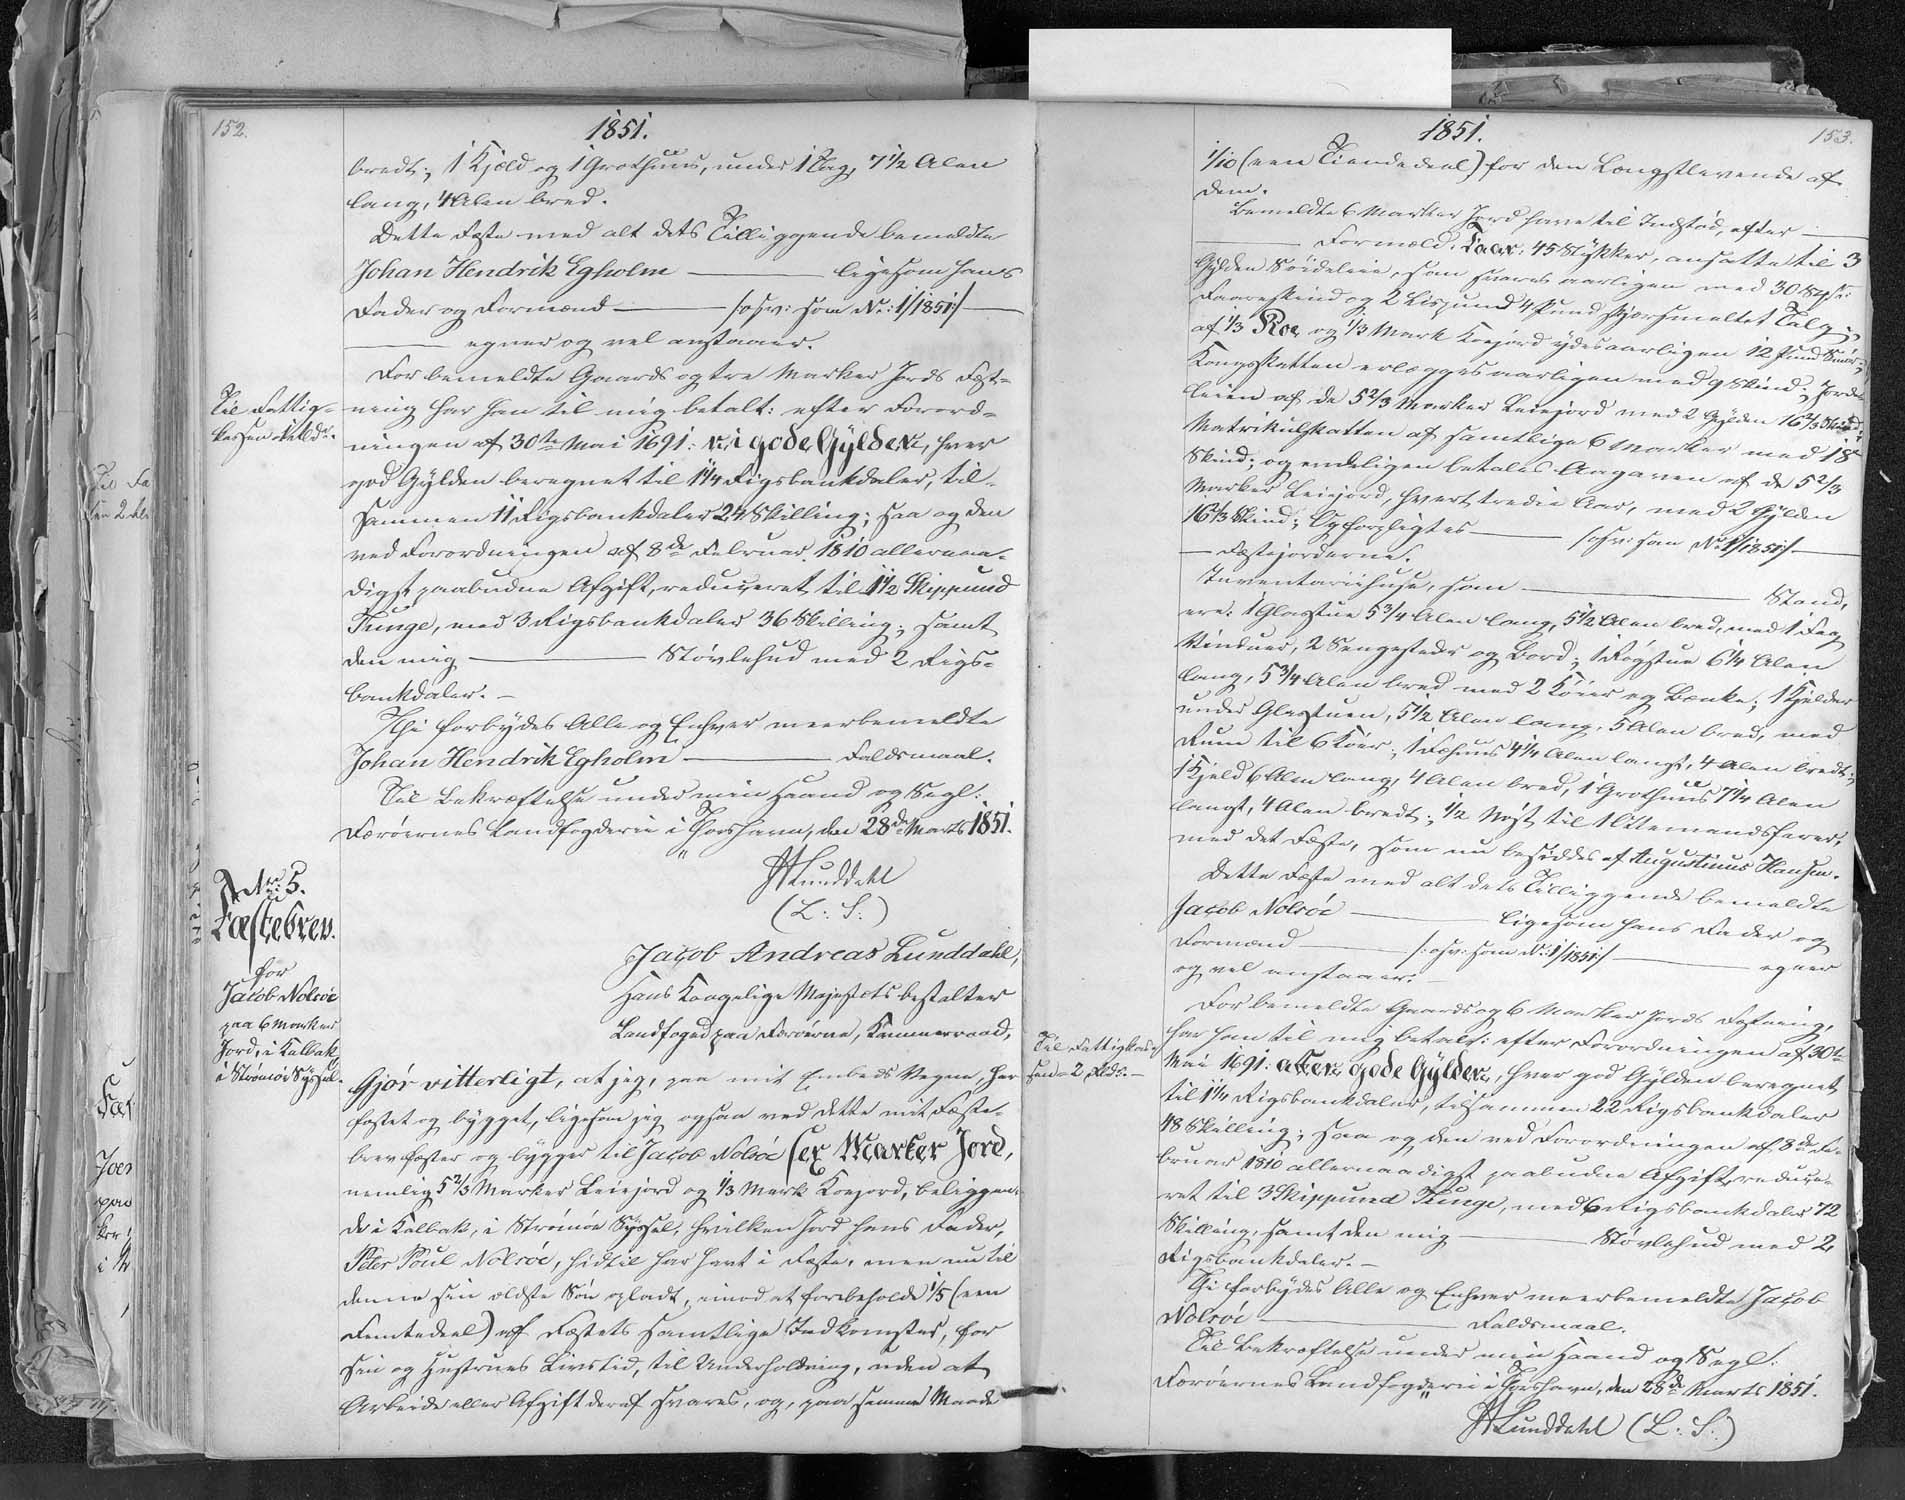 152.
1851.
bredt; 1 Kjeld og 1 Grothuus, under 1 Tag, 7 1/2 Alen
lang, 4 Alen bred.
Dette Fæste med alt dets Tilliggende bemeldte
Johan Hendrik Egholm ——— ligesom hans
Fader og Formænd ——— /:osv: som No: 1/1851:/ ———
——— egner og vel anstaaer.
For bemeldte Gaards og tre Marker Jords Fæst-
ning har han til mig betalt: efter Forord-
ningen af 30te Mai 1691: ni gode Gylden, hver
god Gylden beregnet til 1 1/4 Rigsbankdaler, til-
sammen 11 Rigsbankdaler 24 Skilling; saa og den
ved Forordningen af 8de Februar 1810 allernaa-
digst paabudne Afgift, reduceret til 1 1/2 Skippund
Tunge, med 3 Rigsbankdaler 36 Skilling; samt
den mig ——— Støvlehud med 2 Rigs-
bankdaler. —
Thi forbydes Alle og Enhver meerbemeldte
Johan Hendrik Egholm ——— Faldsmaal.
Til Bekræftelse under min Haand og Segl.
Færøernes Landfogderie i Thorshavn, den 28de Marts 1851.
Lunddahl
(L. S.)
Til Fattig-
kassen
No: 5.
Fæstebrev.
for
Jacob Nolsöe
paa 6 Marker
Jord, i Kalbak
i Strömöe Syssel.
Jacob Andreas Lunddahl,
Hans Kongelige Majestæts bestalter
Landfoged paa Færöerne, Kammerraad,
Gjör vitterligt, at jeg, paa mit Embeds Vegne, har
fæstet og bygget, ligesom jeg ogsaa ved dette mit Fæste-
brev fæster og bygger til Jacob Nolsöe sex Marker Jord,
nemlig 5 2/3 Marker Leiejord og 1/3 Mark Koejord, beliggen-
de i Kalbak, i Strömöe Syssel, hvilken Jord hans Fader,
Peter Poul Nolsöe, hidtil har havt i Fæste, men nu til
denne sin ældste Sön opladt, imod at forbeholde 1/5 (een
Femtedeel) af Fæstets samtlige Indkomster, for
sin og Hustrues Livstid, til Underholdning, uden at
Arbeide eller Afgift deraf svares, og, paa samme Maade
153.
1851.
1/10 (een Tiendedeel) for den Længstlevende af
dem.
Bemeldte 6 Marker Jord have til Indstöd, efter ———
——— Formæld: Faar: 45 Stykker, ansatte til 3
Gylden Söideleie, som svares aarligen med 30
Faareskind og 2 Lispund 4 Pund skjærsmeltet Talg;
af 1/3 Koe og 1/3 Mark Koejord ydes aarligen 12 Pund Smör;
Kongsskatten erlægges aarligen med 9 Skind; Jorde-
leien af de 5 2/3 Marker Leiejord med 2 Gylden 16 2/3 Skind;
Matrikulskatten af samtlige 6 Marker med 18
Skind; og endeligen betales Aagaven af de 5 2/3
Marker Leiejord, hvert tredie Aar, med 2 Gylden
16 2/3 Skind; Og forpligtes ——— /:osv: som No 1/1851:/ ———
— Fæstejorderne.
Inventariihuse, som ——— Stand,
ere: 1 Glasstue 5 3/4 Alen lang, 5 1/2 Alen bred, med 1 Fag
Vinduer, 2 Sengesteder og Bord; 1 Rögstue 6 1/4 Alen
lang, 5 3/4 Alen bred med 2 Köier og Bænke; 1 Kjelder
under Glasstuen, 5 1/2 Alen lang, 5 Alen bred, med
Rum til 6 Köer; 1 Fæhuus 4 1/4 Alen langt, 4 Alen bredt;
1 Kjeld 6 Alen lang, 4 Alen bred, 1 Grothuus 7 1/4 Alen
langt, 4 Alen bredt; 1/2 Nöst til 1 Ottemandsfarer,
med det Fæste, som nu besiddes af Augustinus Hansen.
Dette Fæste med alt dets Tilliggende bemeldte
Jacob Nolsöe ——— ligesom hans Fader og
Formænd ——— /:osv: som No: 1/1851:/ ——— egner
og vel anstaaer. —
For bemeldte Gaards og 6 Marker Jords Fæstning,
har han til mig betalt: efter Forordningen af 30te
Mai 1691: atten gode Gylden, hver god Gylden beregnet
til 1 1/4 Rigsbankdaler, tilsammen 22 Rigsbankdaler
48 Skilling; saa og den ved Forordningen af 8de Fe-
bruar 1810 allernaadigst paabudne Afgift, reduce-
ret til 3 Skippund Tunge, med 6 Rigsbankdaler 72
Skilling, samt den mig ——— Støvlehud med 2
Rigsbankdaler. —
Thi forbydes Alle og Enhver meerbemeldte Jacob
Nolsöe ——— Faldsmaal.
Til Bekræftelse under min Haand og Segl.
Færöernes Landfogderie i Thorshavn, den 28de Marts 1851.
Lunddahl (L. S.)
Til Fattigkas-
sen 2 Rbd. —